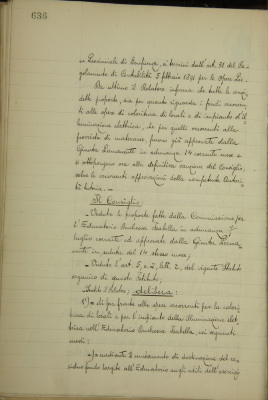 636
ca Provinciale di Confienza, a termini dell'art. 31 del Re-
golamento di Contabilità 5 febbraio 1891 per le Opere Pie.
Da ultimo il Relatore informa che tutte le sud-
dette proposte, sia per quanto riguarda i fondi occorren-
ti alle opere di coloritura di locali e di impianto d'il-
luminazione elettrica, sia per quelli occorrenti alla
provvista di materiale, furono già approvate dalla
Giunta in adunanza 14 corrente mese e
si sottopongono ora alla definitiva sanzione del Consiglio,
salve le occorrenti approvazioni della competente Autori-
tà tutoria. —
Il Consiglio
- Vedute le proposte fatte dalla Commissione per
l'Educatorio Duchessa Isabella in adunanza
luglio corrente ed approvate dalla Giunta
in seduta del 14 stesso mese;
- Veduto l'art. 5, n. 2, lett. 2, del vigente Statuto
organico di questo Istituto;
- Udito il Relatore; delibera:
1°) = di far fronte alle spese occorrenti per la colori-
tura di locali e per l'impianto della illuminazione elet-
trica nell'Educatorio Duchessa Isabella, nei seguenti
modi:
a) mediante il mutamento di destinazione del re-
siduo fondo largito all'Educatorio sugli utili dell'esercizio